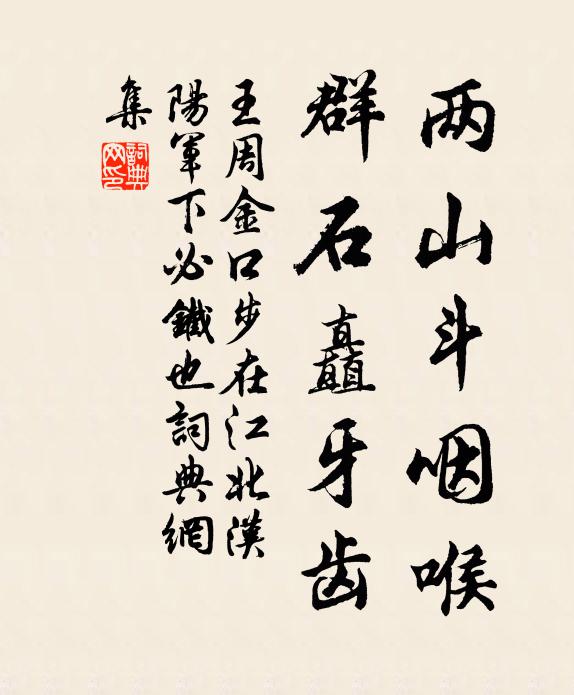 两山斗咽喉
群石矗牙齿
王周金口步在江北漢
陽軍下必鐵也詞典網
集
詞典網印